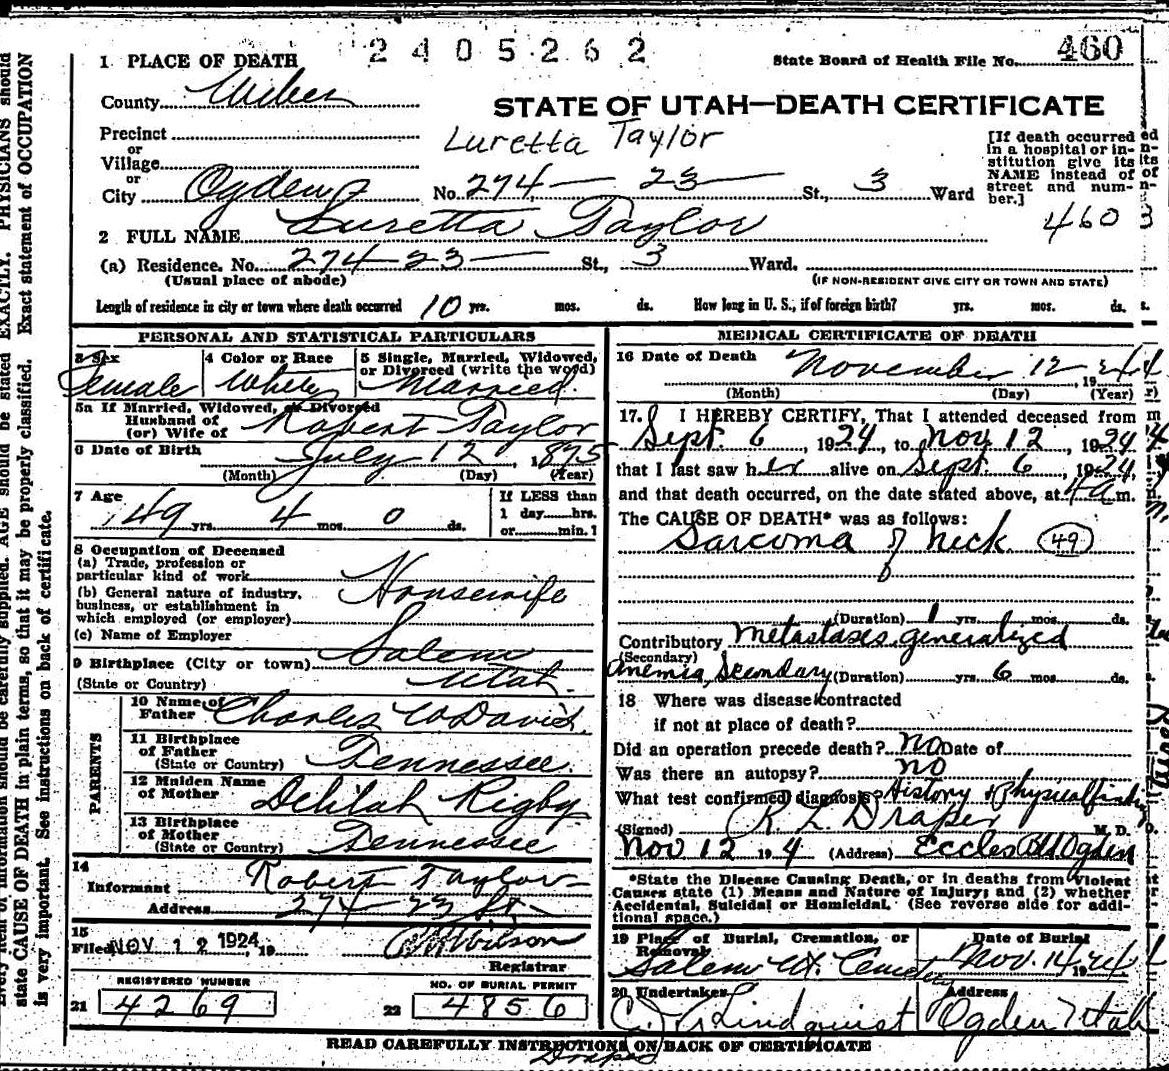 2405262
1 PLACE OF DEATH
State Board of Health File No. 460
County Weber
STATE OF UTAH—DEATH CERTIFICATE
Precinct
or
Village
or
City Ogden
Luretta Taylor
No. 274 — 23 — St., 3 Ward
[If death occurred in a hospital or institution give its NAME instead of street and number.]
460
2 FULL NAME Luretta Taylor
(a) Residence. No. 274-23— St., 3 Ward.
(Usual place of abode)
(IF NON-RESIDENT GIVE CITY OR TOWN AND STATE)
Length of residence in city or town where death occurred 10 yrs. mos. ds. How long in U. S., if of foreign birth? yrs. mos. ds.
PERSONAL AND STATISTICAL PARTICULARS
3 Sex
Female
4 Color or Race
White
5 Single, Married, Widowed, or Divorced (write the word)
Married.
5a If Married, Widowed, or Divorced
Husband of
(or) Wife of Robert Taylor
6 Date of Birth July 12, 1875
(Month) (Day) (Year)
7 Age
49 yrs. 4 mos. 0 ds.
If LESS than
1 day hrs.
or min.?
8 Occupation of Deceased
(a) Trade, profession or
particular kind of work
Housewife
(b) General nature of industry,
business, or establishment in
which employed (or employer)
(c) Name of Employer
9 Birthplace (City or town) Salem
(State or Country) Utah.
PARENTS
10 Name of
Father Charles W Davis.
11 Birthplace
of Father
(State or Country) Tennessee.
12 Maiden Name
of Mother Delilah Rigby
13 Birthplace
of Mother
(State or Country) Tennessee
14
Informant Robert Taylor
Address 274 23 St.
15
Filed NOV 12 1924, 19
Wilson
Registrar
REGISTERED NUMBER
21 4269
NO. OF BURIAL PERMIT
22 4856
MEDICAL CERTIFICATE OF DEATH
16 Date of Death November 12, 1924
(Month) (Day) (Year)
17. I HEREBY CERTIFY, That I attended deceased from
Sept. 6, 1924, to Nov 12, 1924,
that I last saw her alive on Sept. 6, 1924,
and that death occurred, on the date stated above, at 4 a m.
The CAUSE OF DEATH* was as follows:
Sarcoma of neck (49)
(Duration) 1 yrs. mos. ds.
Contributory metastases, generalized
(Secondary)
Anemia, Secondary (Duration) yrs. 6 mos. ds.
18 Where was disease contracted
if not at place of death?
Did an operation precede death? no Date of
Was there an autopsy? no
What test confirmed diagnosis? History & Physical
(Signed) R. L. Draper M. D.
Nov 12 19 4 (Address) Eccles Bld Ogden
*State the Disease Causing Death, or in deaths from Violent
Causes state (1) Means and Nature of Injury; and (2) whether
Accidental, Suicidal or Homicidal. (See reverse side for addi-
tional space.)
19 Place of Burial, Cremation, or
Removal
Salem Ut. Cemetery
Date of Burial
Nov. 14 1924
20 Undertaker
Lindquist
Address
Ogden Utah
READ CAREFULLY INSTRUCTIONS ON BACK OF CERTIFICATE
Draper
EXACTLY. PHYSICIANS should
state CAUSE OF DEATH in plain terms, so that it may be properly classified. Exact statement of OCCUPATION
is very important. See instructions on back of certificate.